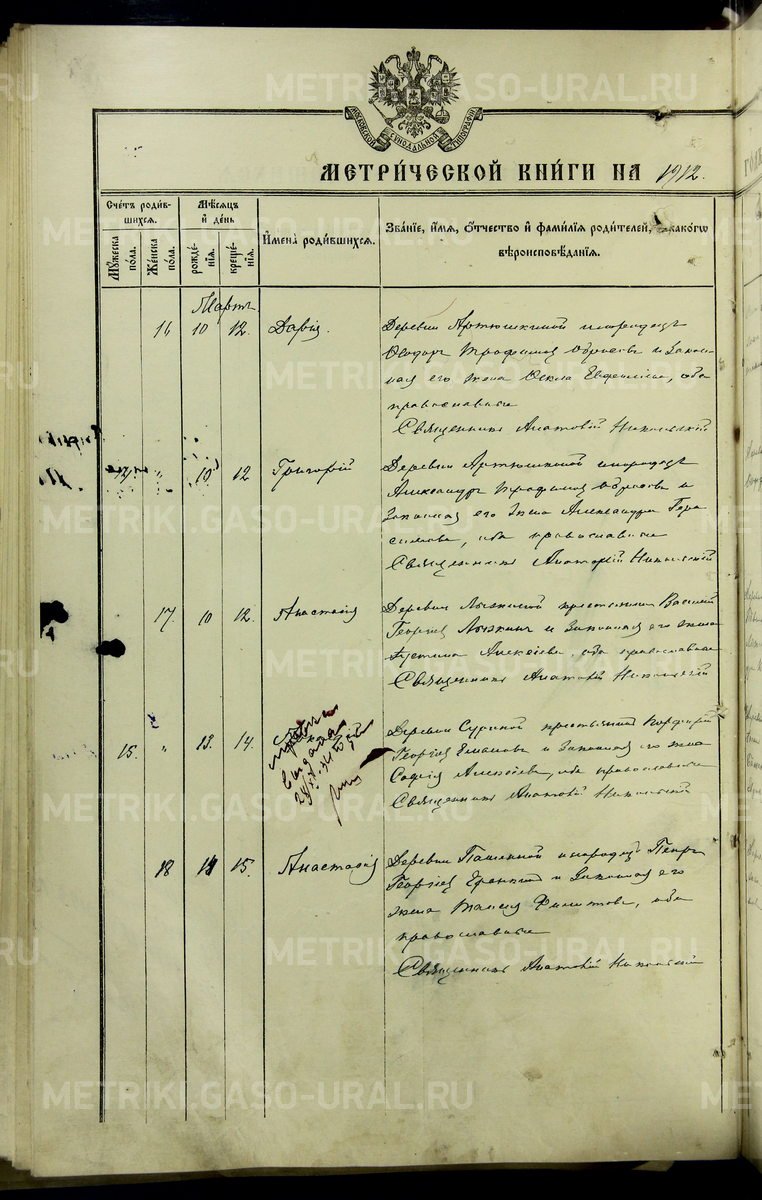 МОСКОВСКОЙ СѴНОДАЛЬНОЙ ТИПОГРАФІИ
МЕТРИ́ЧЕСКОЙ КНИ́ГИ НА 1912.
Сче́тъ роди́в-
шихся.
Мѣ́сяцъ
и҆ де́нь
И҆мена̀ роди́вшихся.
Зва́нїе, и҆́мя, ѻ҆́тчество и҆ фами́лїя роди́телей, како́гѡ
вѣроисповѣ́данїя.
Мꙋ́жеска
по́ла.
Же́нска
по́ла.
рожде́-
нїя.
креще́-
нїя.
Мартъ
16 10 12. Дарія.
Деревни Артюшкиной инородецъ
Ѳеодоръ Трофимов и закон-
ная его жена Ѳекла, оба
православные
Священникъ Анатолій Никольскій
" 10 12 Григорій
Деревни Артюшкиной инородецъ
Александръ Трофимов и
законная его жена Александра Гера-
симова, оба православные
Священникъ Анатолій Никольскій
17. 10 12. Анастасія
Деревни крестьянинъ Василій
Георгіев и законная его жена
Алексѣева, оба православные
Священникъ Анатолій Никольскій
15. " 13. 14.
Деревни крестьянинъ Порфирій
Георгіев и законная его жена
Софія Алексѣева, оба православные
Священникъ Анатолій Никольскій
18 15. Анастасія
Деревни инородецъ Петръ
Георгіев и законная его
жена Таисія, оба
православные
Священникъ Анатолій Никольскій
METRIKI.GASO-URAL.RU